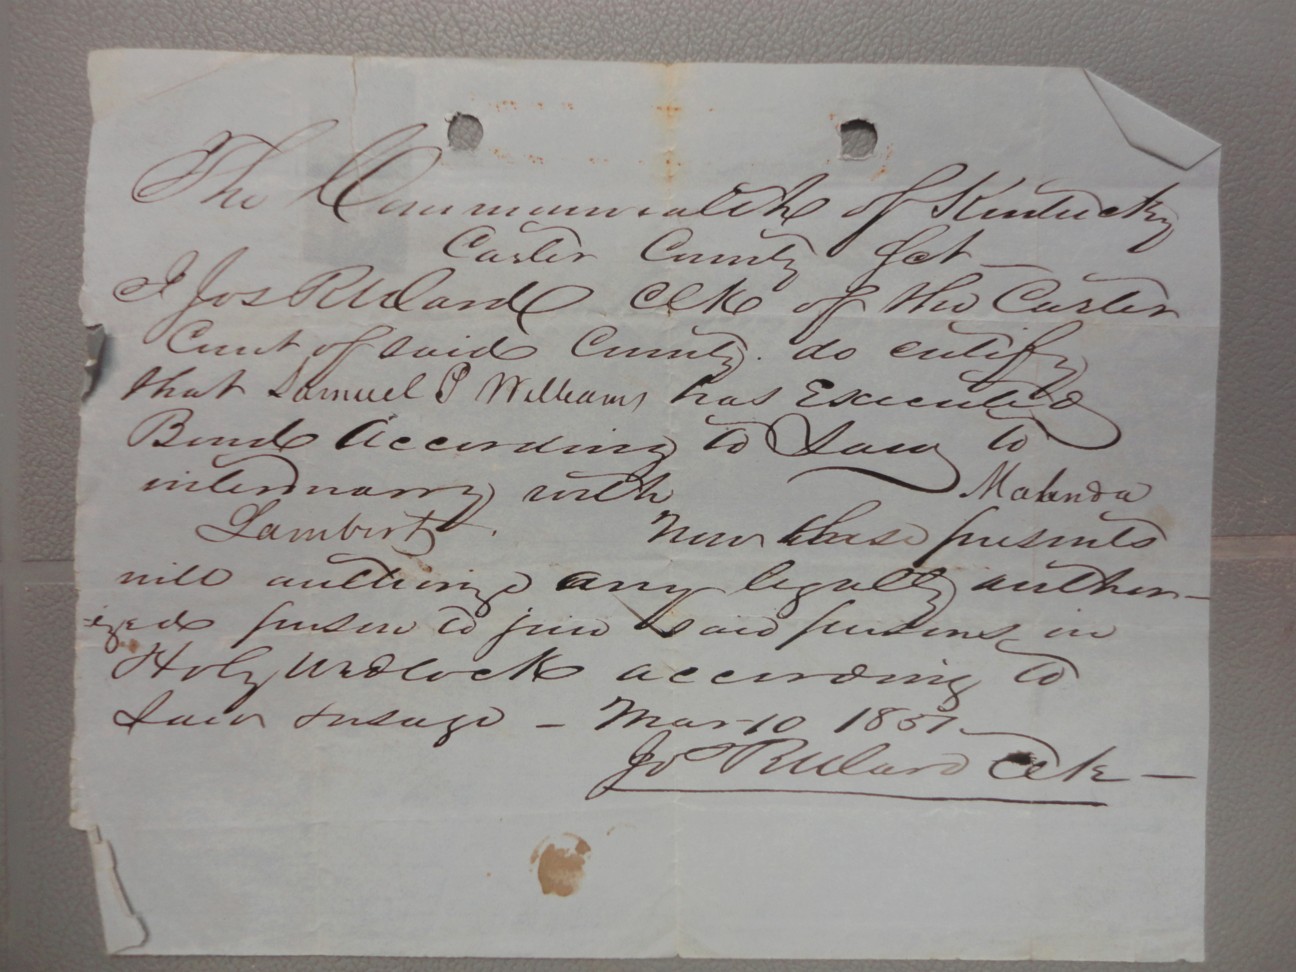 The Commonwealth of Kentucky
Carter County Sct —
I Jos R Ward Clk of the Carter
Court of said County. do certify
that Samuel P Williams has Executed
Bond According to Law to
intermarry with Malinda
Lambert. Now these presents
will authorize any legally author-
-ized person to join said persons in
Holy Wedlock according to
Law & usage — Mar 10 1857
Jos R Ward Clk —